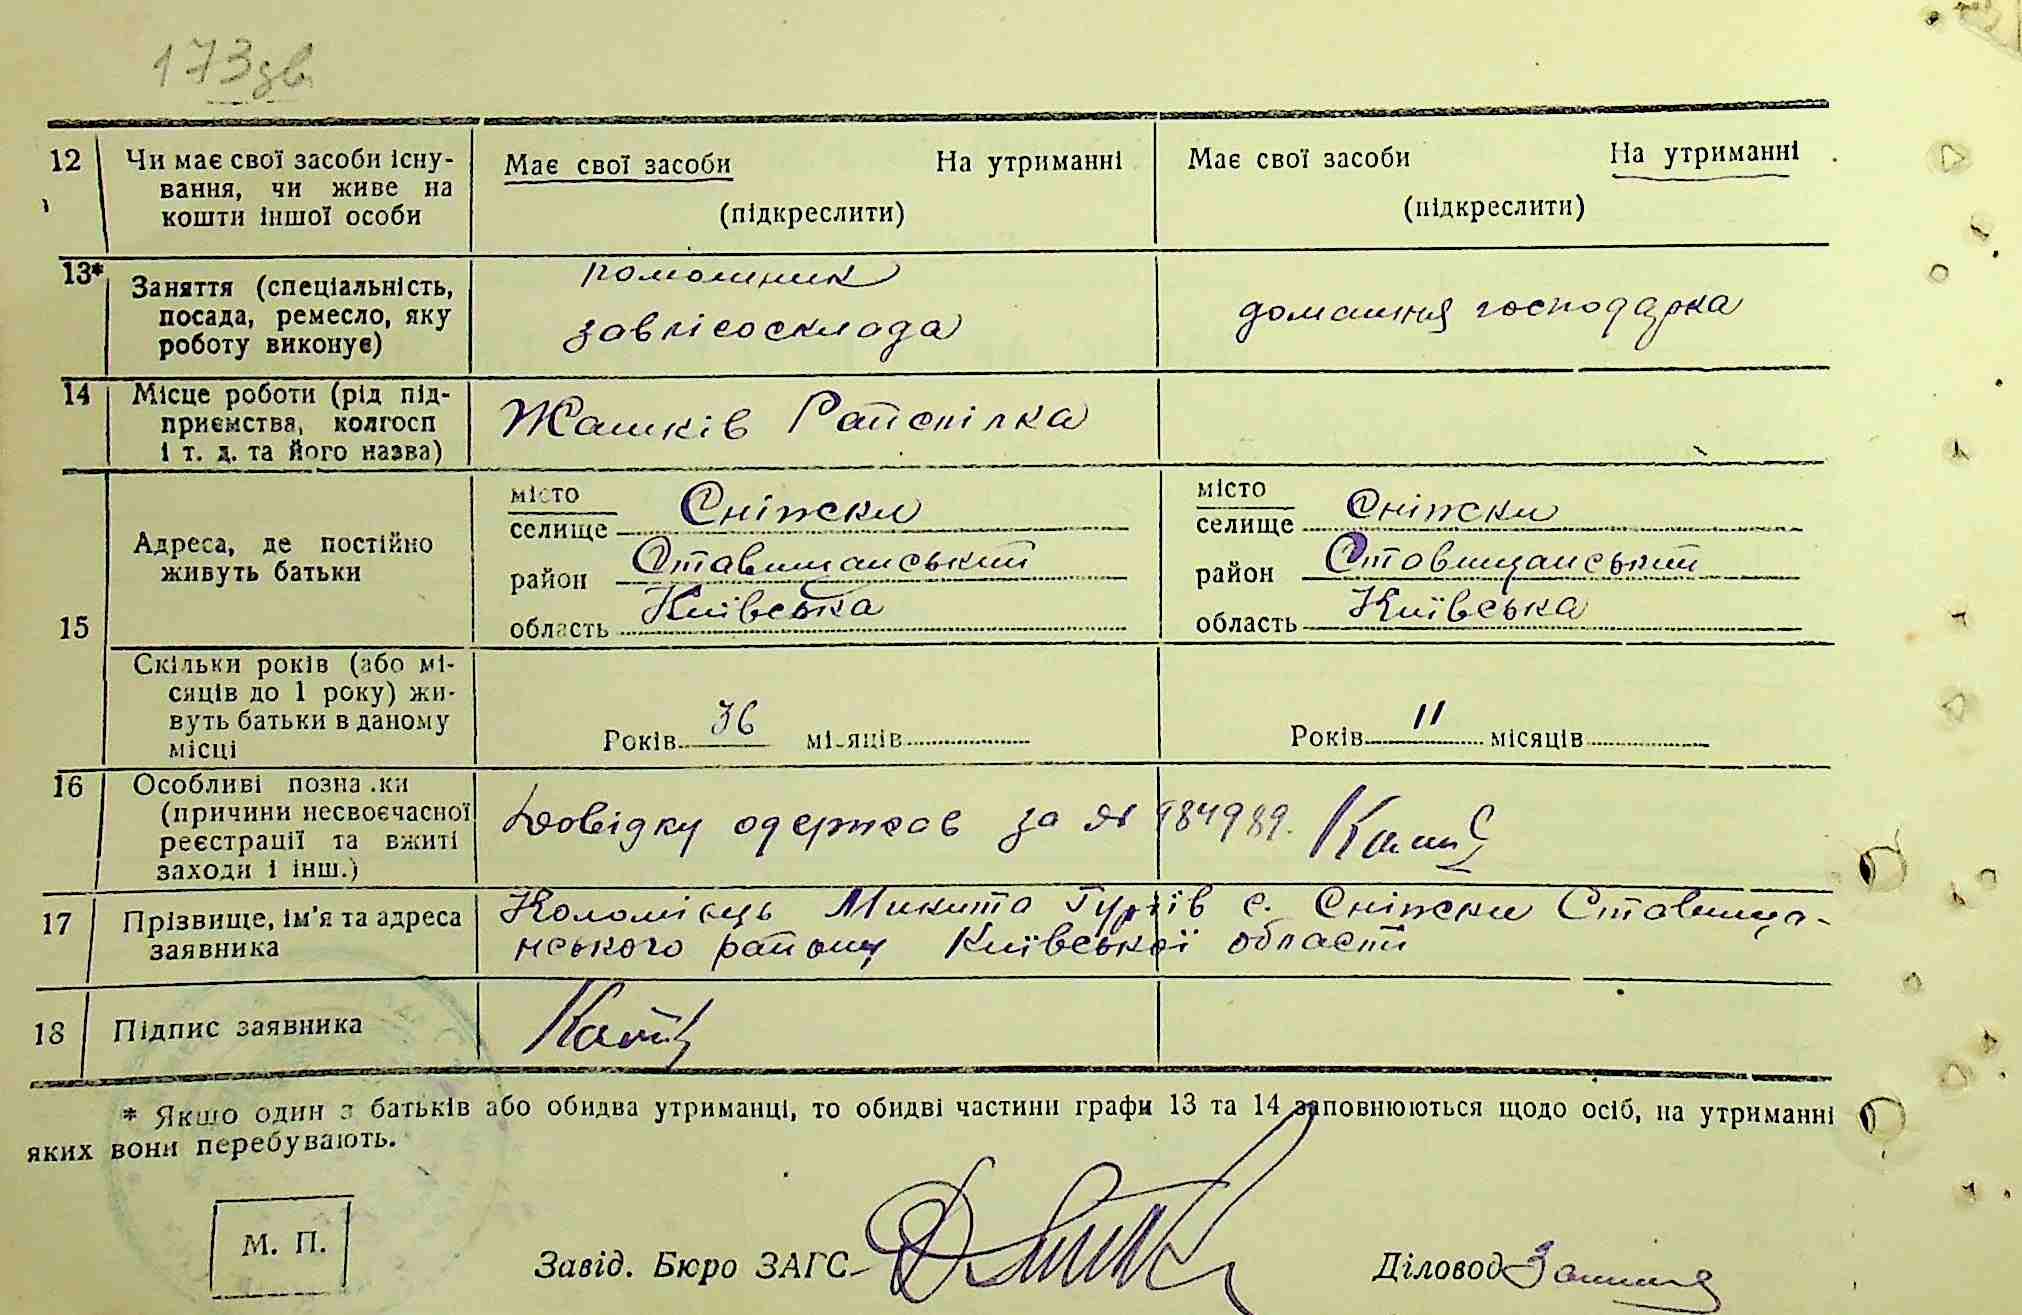 173зв
12 Чи має свої засоби існу-
вання, чи живе на
кошти іншої особи
Має свої засоби На утриманні
(підкреслити)
Має свої засоби На утриманні
(підкреслити)
13* Заняття (спеціальність,
посада, ремесло, яку
роботу виконує)
помошник
завлісосклада
домашня господарка
14 Місце роботи (рід під-
приємства, колгосп
і т. д. та його назва)
Жашків Райспілка
15 Адреса, де постійно
живуть батьки
місто
селище Сніжки
район Ставищанський
область Київська
місто
селище Сніжки
район Ставищанський
область Київська
Скільки років (або мі-
сяців до 1 року) жи-
вуть батьки в даному
місці
Років 36 місяців
Років 11 місяців
16 Особливі позначки
(причини несвоєчасної
реєстрації та вжиті
заходи і інш.)
Довідку одержав за № 984989.
17 Прізвище, ім'я та адреса
заявника
Коломієць Микита Гурїв с. Сніжки Ставища-
нського району Київської області
18 Підпис заявника
* Якшо один з батьків або обидва утриманці, то обидві частини графи 13 та 14 заповнюються щодо осіб, на утриманні
яких вони перебувають.
М. П.
Завід. Бюро ЗАГС
Діловод